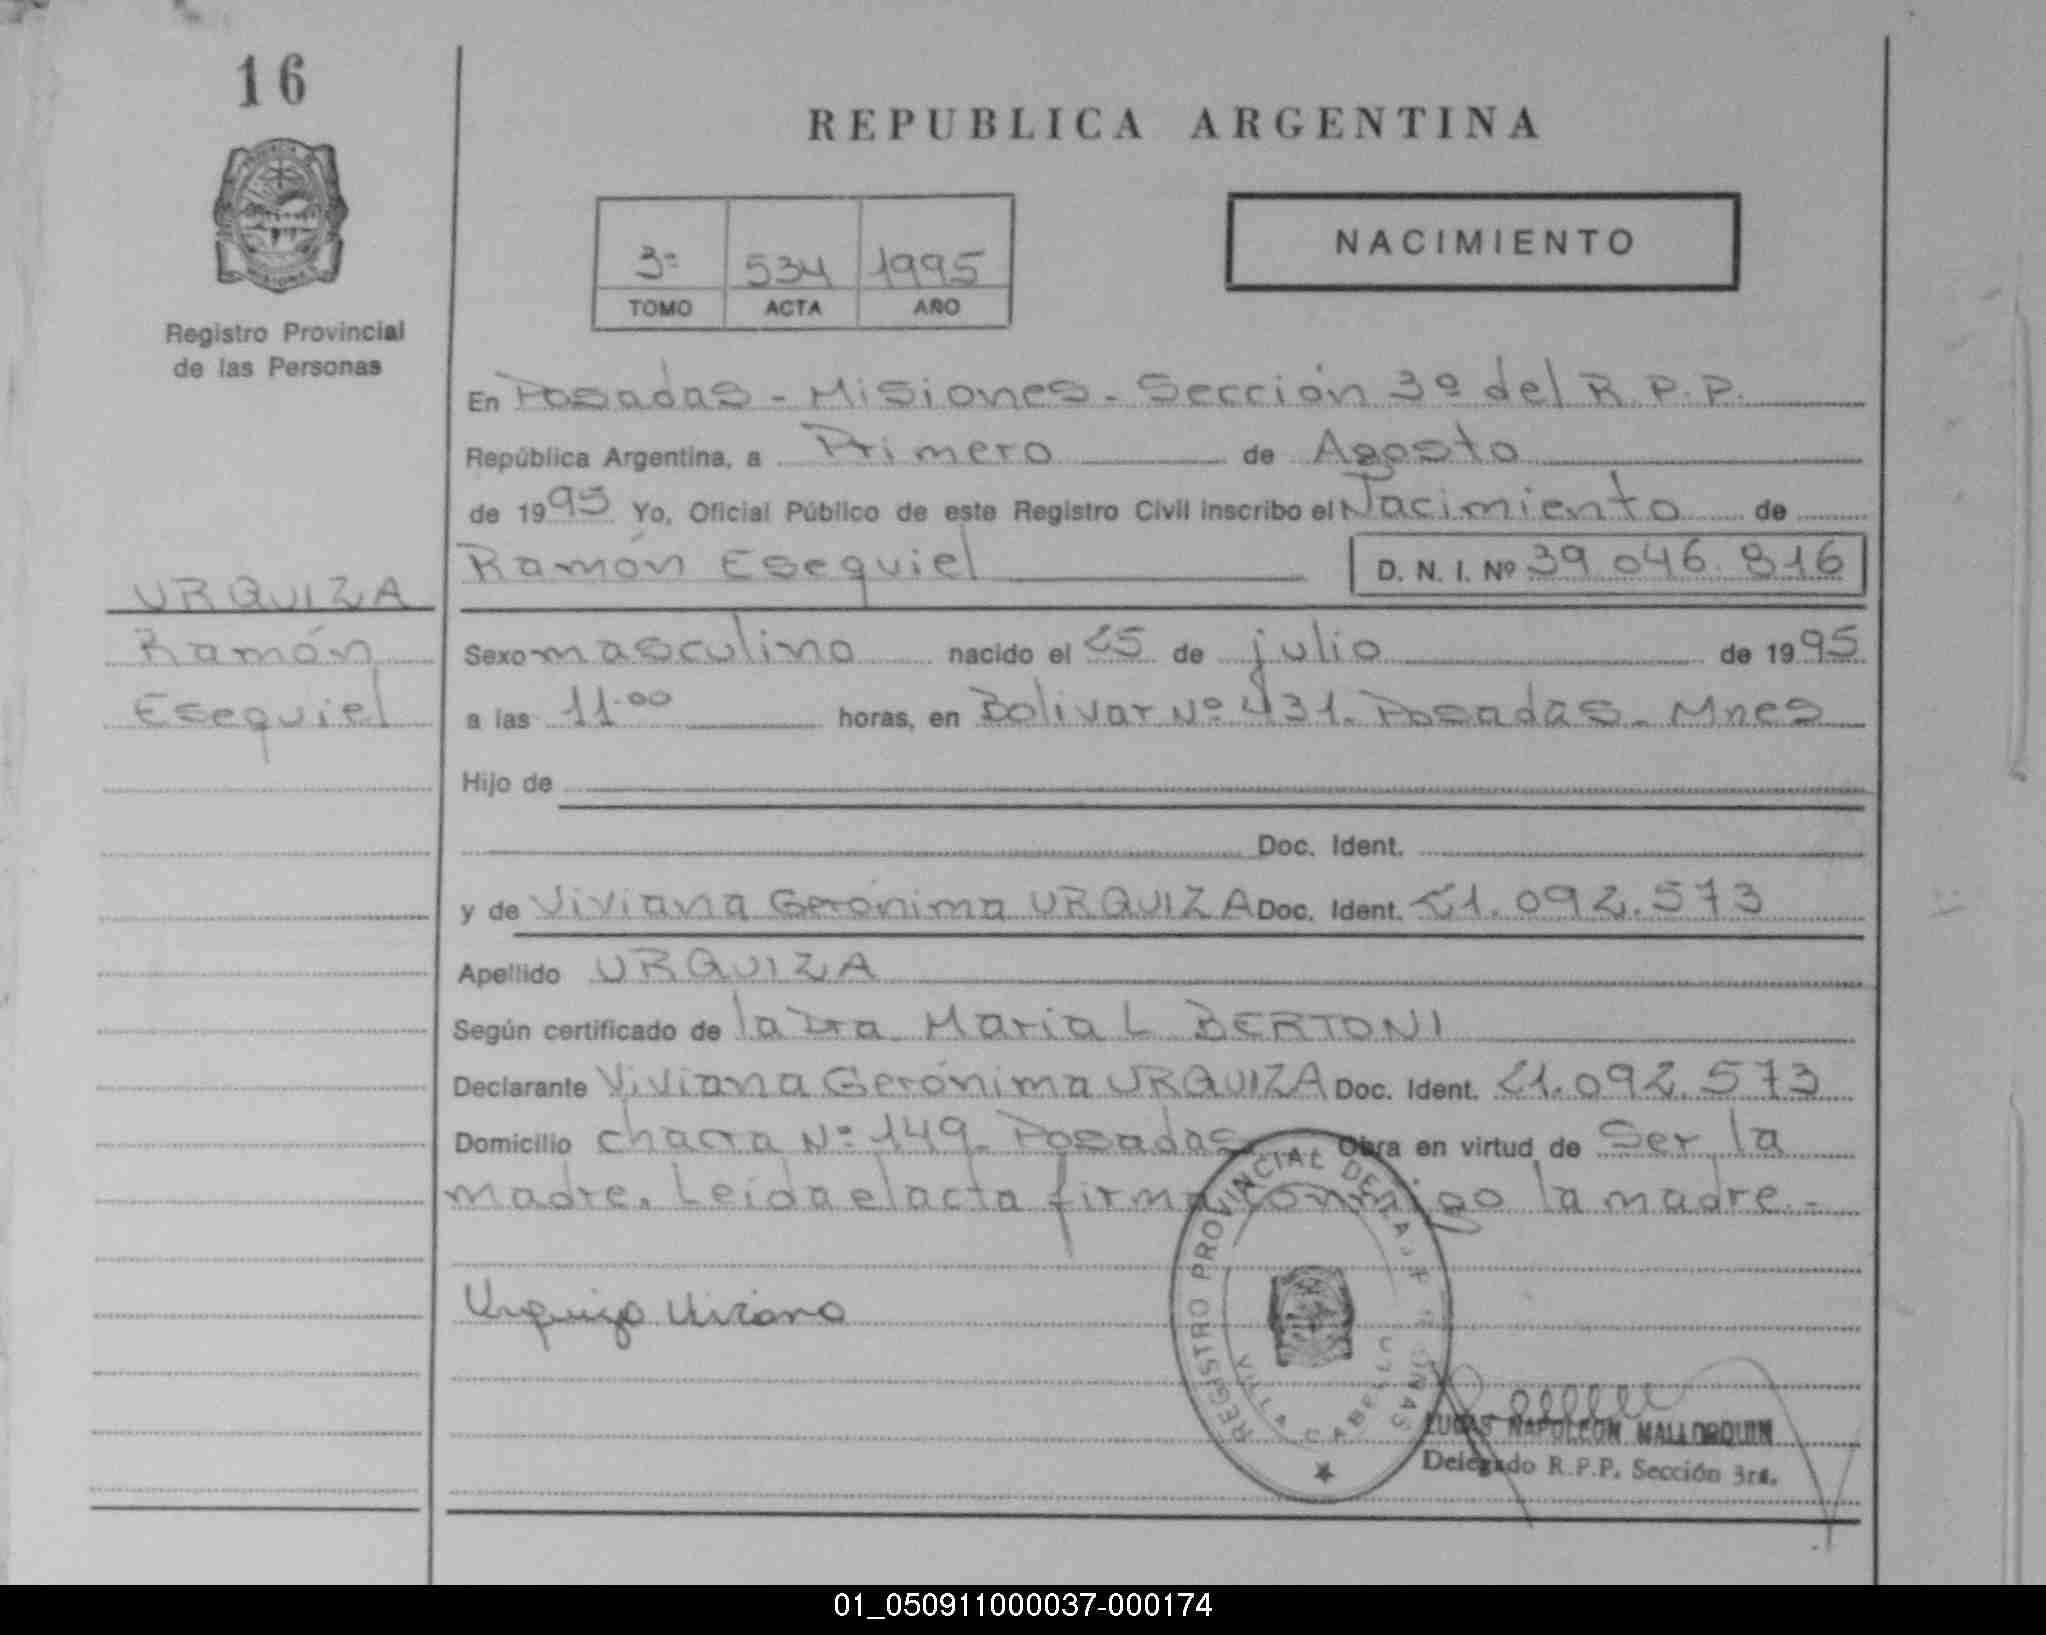 16
REPUBLICA ARGENTINA
NACIMIENTO
3º 534 1995
TOMO ACTA AÑO
Registro Provincial
de las Personas
En Posadas - Misiones - Sección 3º del R.P.P.
República Argentina, a Primero de Agosto
de 1995 Yo, Oficial Público de este Registro Civil inscribo el Nacimiento de
Ramón Esequiel D. N. I. Nº 39.046.816
URQUIZA
Ramón
Esequiel
Sexo masculino nacido el 25 de julio de 1995
a las 11.00 horas, en Bolivar Nº 431. Posadas - Mnes
Hijo de
Doc. Ident.
y de Viviana Gerónima URQUIZA Doc. Ident. 21.092.573
Apellido URQUIZA
Según certificado de la Dra Maria L BERTONI
Declarante Viviana Gerónima URQUIZA Doc. Ident. 21.092.573
Domicilio chacra Nº 149 - Posadas Obra en virtud de Ser la
madre. Leída el acta firma conmigo la madre.-
Urquiza Viviana
REGISTRO PROVINCIAL DE LAS
LUCAS NAPOLEON MALLORQUIN
Delegado R.P.P. Sección 3ra.
01_050911000037-000174